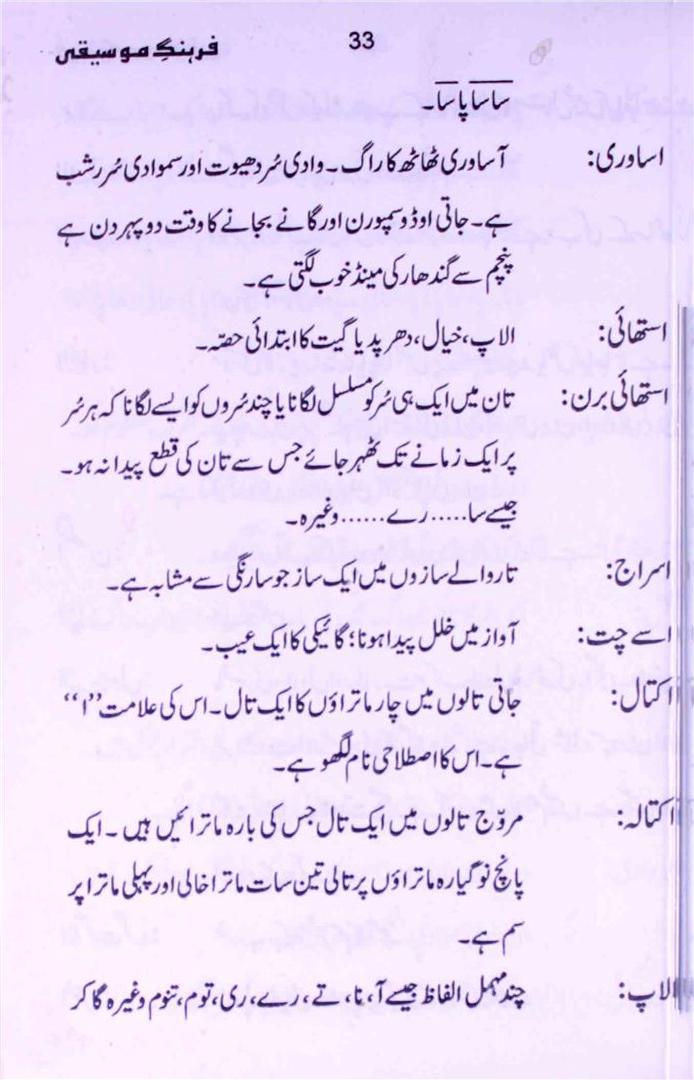 فرہنگِ موسیقی 33
سا سا پا سا۔
اساوری: آساوری ٹھاٹھ کا راگ۔ وادی سُر دھیوت اور سموادی سُر رشب
ہے۔ جاتی اوڈو سمپورن اور گانے بجانے کا وقت دوپہر دن ہے
پنچم سے گندھار کی مینڈ خوب لگتی ہے۔
استھائی: الاپ، خیال، دھرپد یا گیت کا ابتدائی حصّہ۔
استھائی برن: تان میں ایک ہی سُر کو مسلسل لگانا یا چند سُروں کو ایسے لگانا کہ ہر سُر
پر ایک زمانے تک ٹھہر جائے جس سے تان کی قطع پیدا نہ ہو۔
جیسے سا..... رے ...... وغیرہ۔
اسراج: تار والے سازوں میں ایک ساز جو سارنگی سے مشابہ ہے۔
اسے چت: آواز میں خلل پیدا ہونا؛ گائیکی کا ایک عیب۔
اکتال: جاتی تالوں میں چار ماتراؤں کا ایک تال۔ اس کی علامت ”ا“
ہے۔ اس کا اصطلاحی نام لگھو ہے۔
اکتالہ: مروّج تالوں میں ایک تال جس کی بارہ ماترائیں ہیں۔ ایک
پانچ نو گیارہ ماتراؤں پر تالی تین سات ماترا خالی اور پہلی ماترا پر
سم ہے۔
الاپ: چند مہمل الفاظ جیسے آ، نا، تے، رے، ری، توم، تنوم وغیرہ گا کر